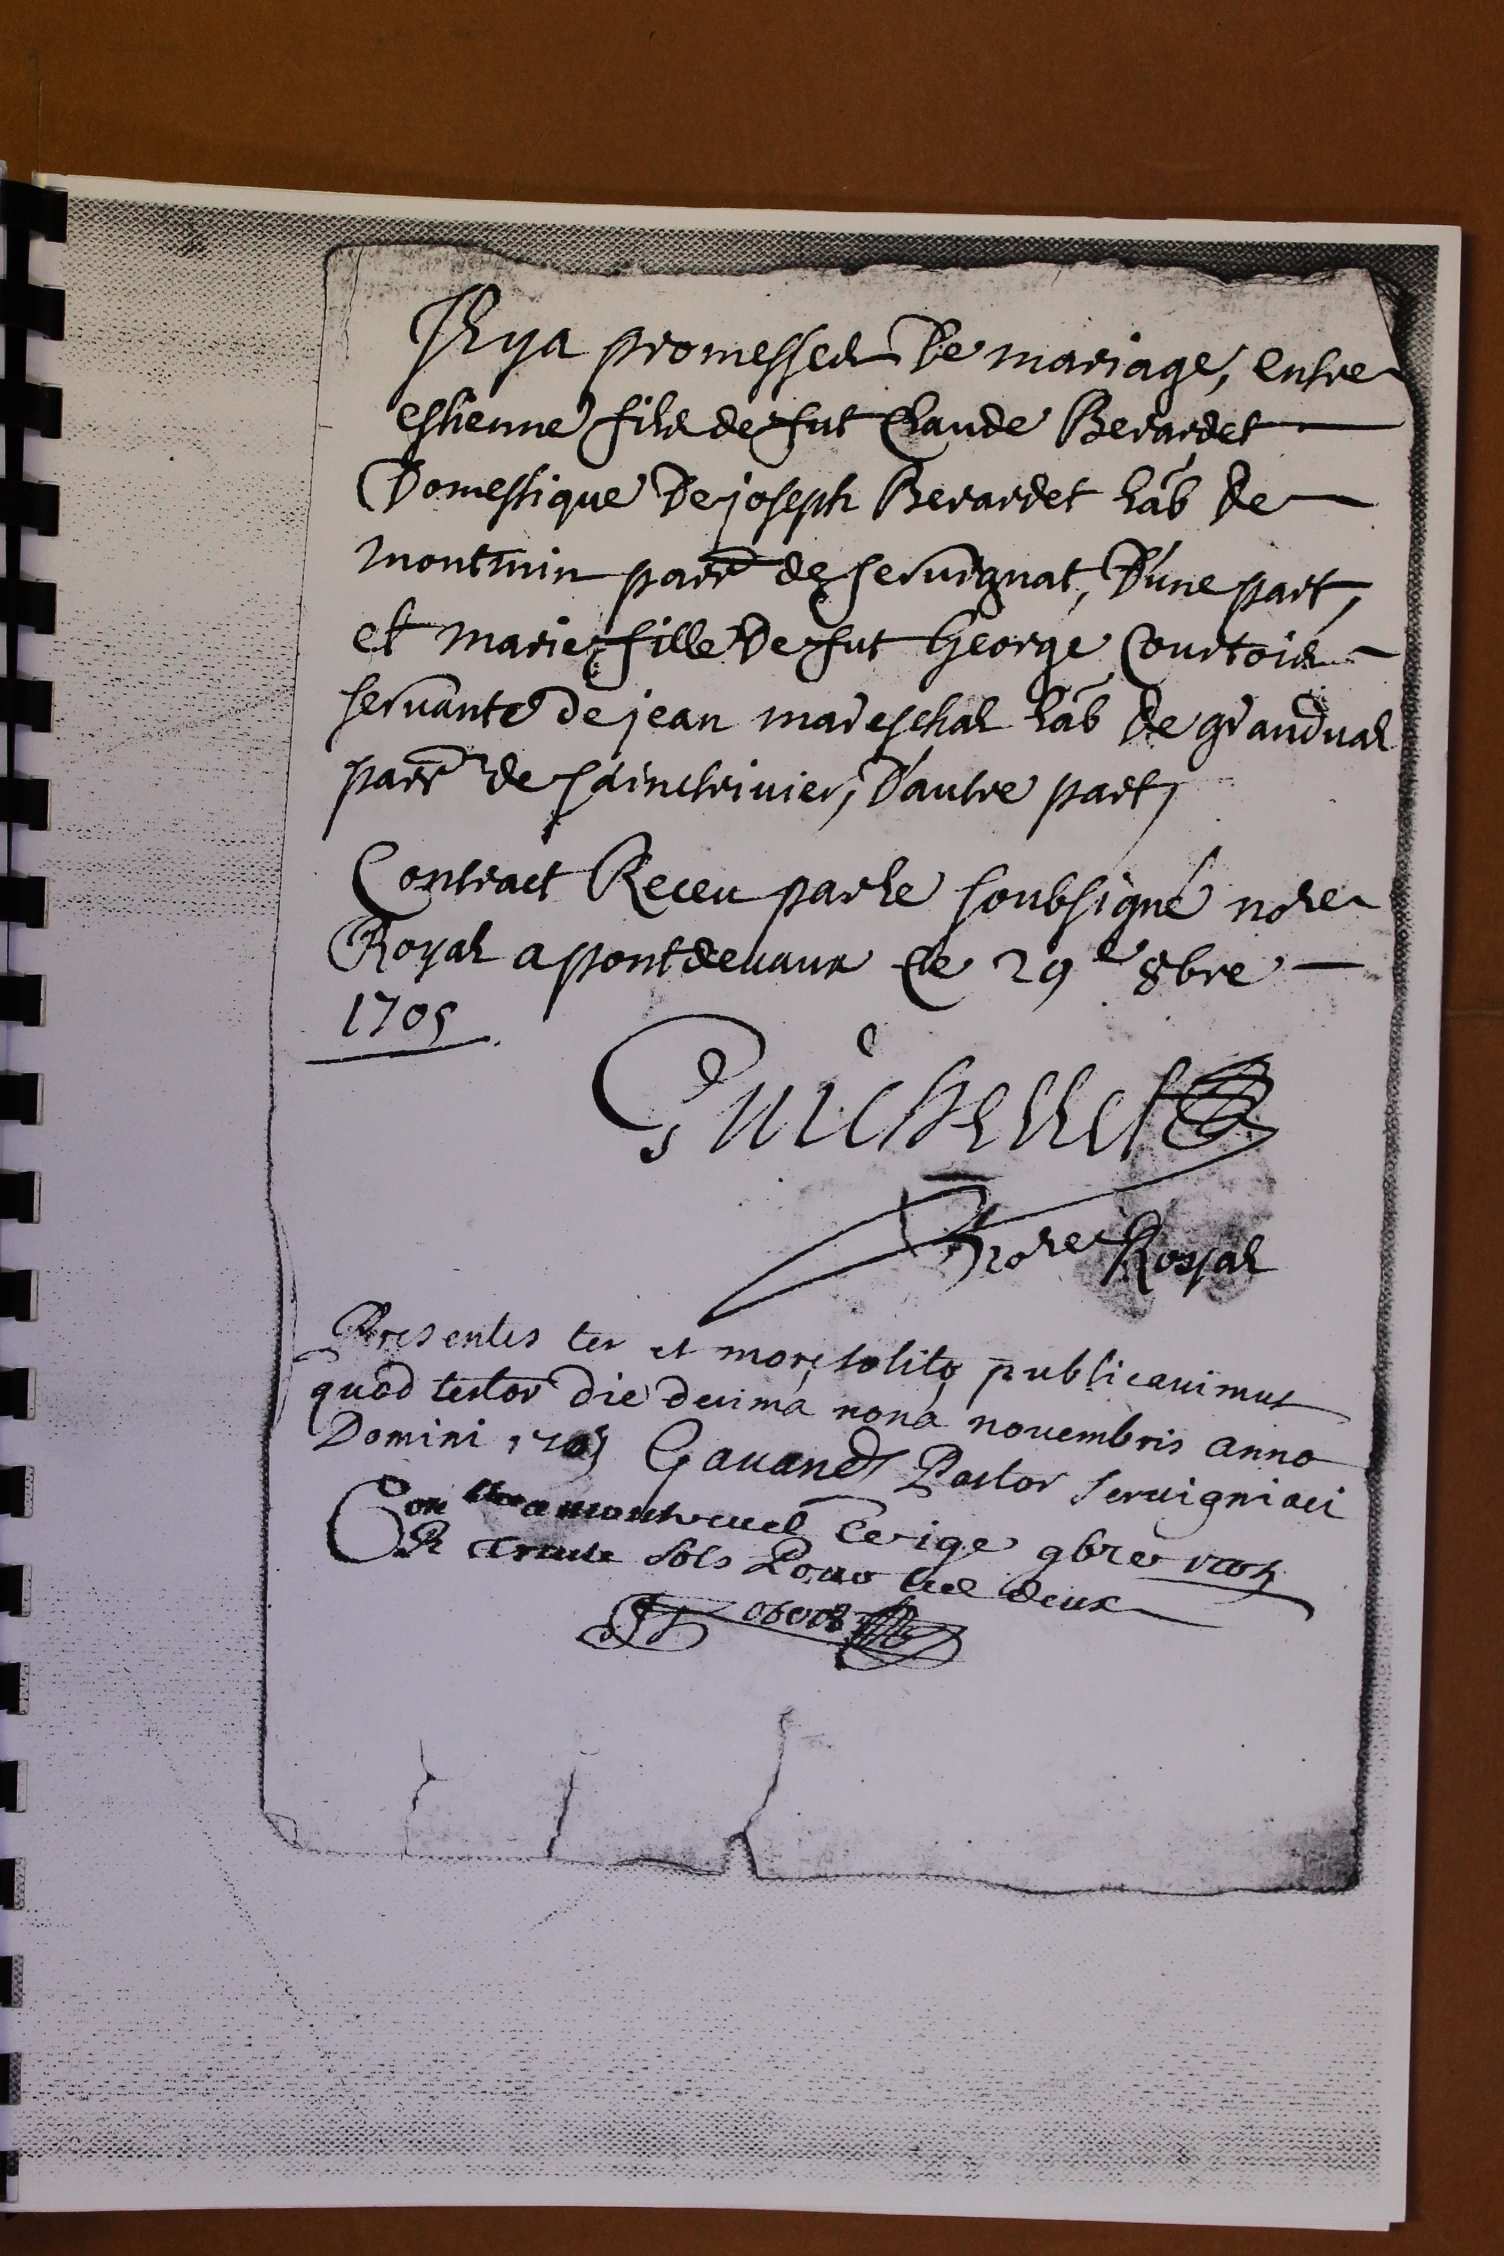 Il y a promesses De mariage, entre
estienne fils de fut Claude Berardet
Domestique De joseph Berardet lab de
montmin parr de servignat, D'une part,
et marie fille De fut George Courtois
servante De jean mareschal lab de grandval
parr de sainctrivier, D'autre part,
Contract Receu par le soubsigné nore
Royal a pontdevaux le 29e 8bre
1705
Guichellet
nore Royal
Presentes ter et more solito publicavimus
quod testor die decima nona novembris anno
Domini 1705 Gavand Pastor servigniaci
Con a montrevel Ce 9bre 1705
R trente sols Pour les deux